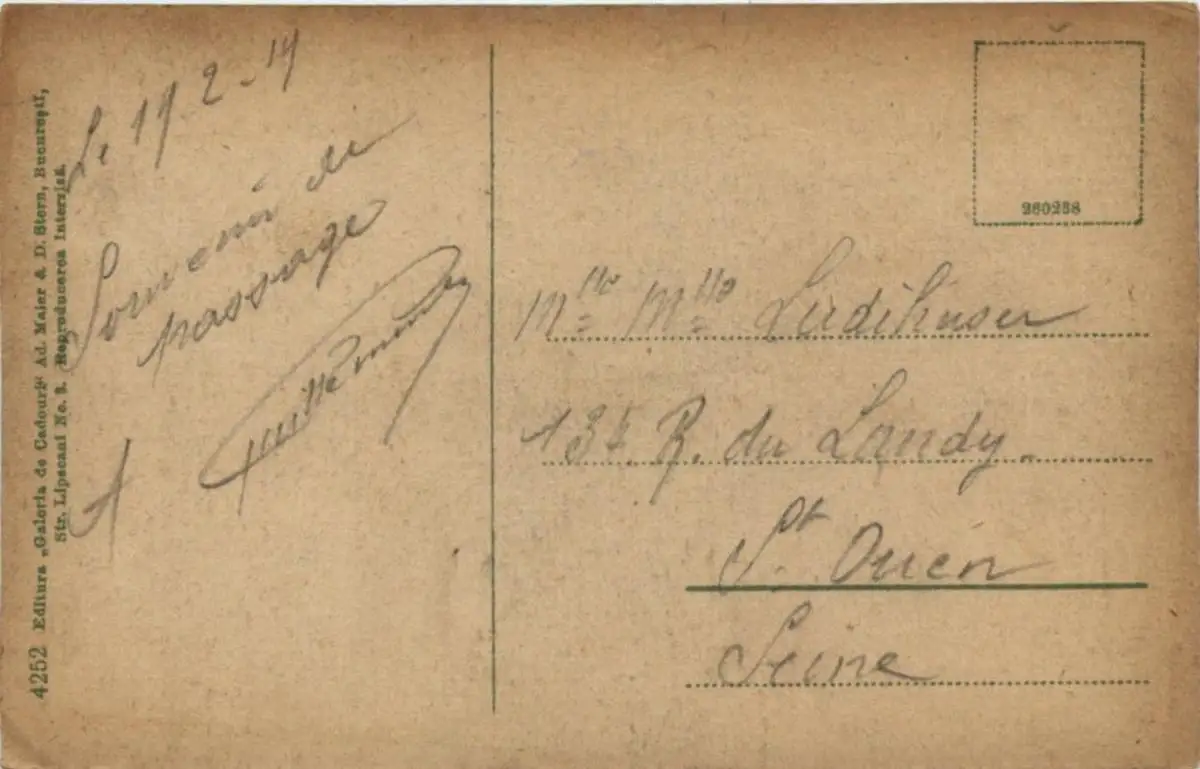 Le 19 2 - 19
Souvenir de
passage
A Guillemin
4252 Editura „Galeria de Cadouri“ Ad. Maier & D. Stern, Bucureşti,
Str. Lipscani No. 9. Reproducerea Interzisă.
260238
Mlle Mlle
R. du Landy.
St. Ouen
Seine